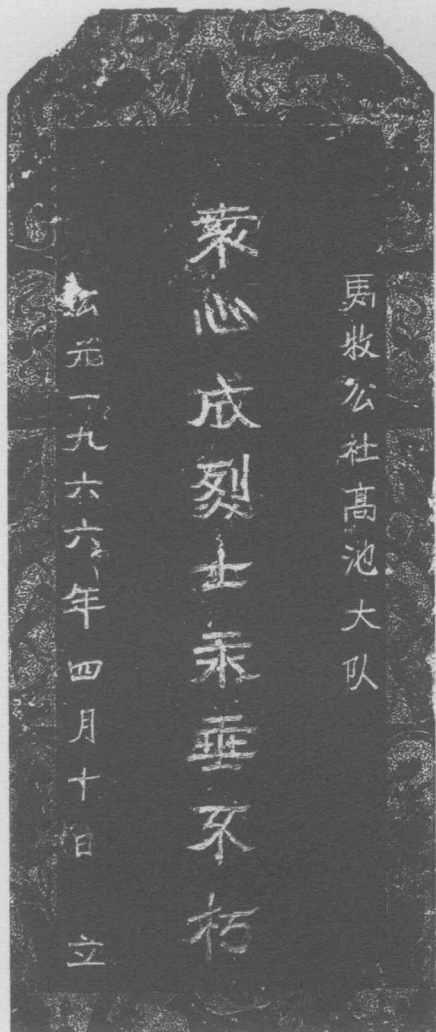 馬牧公社髙池大队
心成烈士永垂不朽
公元一九六六年四月十日 立